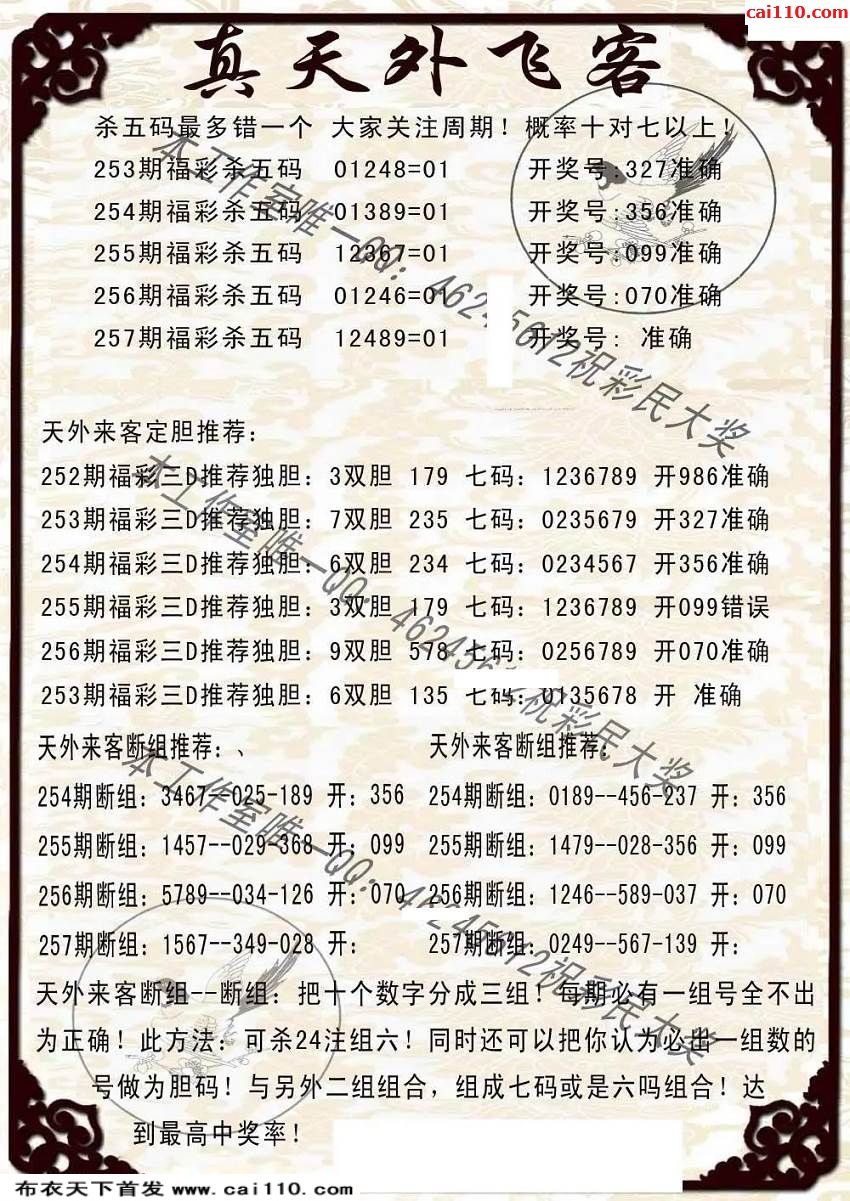 cai110.com
真天外飞客
杀五码最多错一个 大家关注周期！概率十对七以上！
253期福彩杀五码 01248=01 开奖号:327准确
254期福彩杀五码 01389=01 开奖号:356准确
255期福彩杀五码 12367=01 开奖号:099准确
256期福彩杀五码 01246=01 开奖号:070准确
257期福彩杀五码 12489=01 开奖号: 准确
天外来客定胆推荐：
252期福彩三D推荐独胆：3双胆 179 七码：1236789 开986准确
253期福彩三D推荐独胆：7双胆 235 七码：0235679 开327准确
254期福彩三D推荐独胆：6双胆 234 七码：0234567 开356准确
255期福彩三D推荐独胆：3双胆 179 七码：1236789 开099错误
256期福彩三D推荐独胆：9双胆 578 七码：0256789 开070准确
253期福彩三D推荐独胆：6双胆 135 七码：0135678 开 准确
天外来客断组推荐：、 天外来客断组推荐：
254期断组：3467--025-189 开：356 254期断组：0189--456-237 开：356
255期断组：1457--029-368 开：099 255期断组：1479--028-356 开：099
256期断组：5789--034-126 开：070 256期断组：1246--589-037 开：070
257期断组：1567--349-028 开： 257期断组：0249--567-139 开：
天外来客断组--断组：把十个数字分成三组！每期必有一组号全不出
为正确！此方法：可杀24注组六！同时还可以把你认为必出一组数的
号做为胆码！与另外二组组合，组成七码或是六吗组合！达
到最高中奖率！
本工作室唯一QQ：46245612祝彩民大奖
本工作室唯一QQ：46245612祝彩民大奖
本工作室唯一QQ：46245612祝彩民大奖
布衣天下首发 www.cai110.com